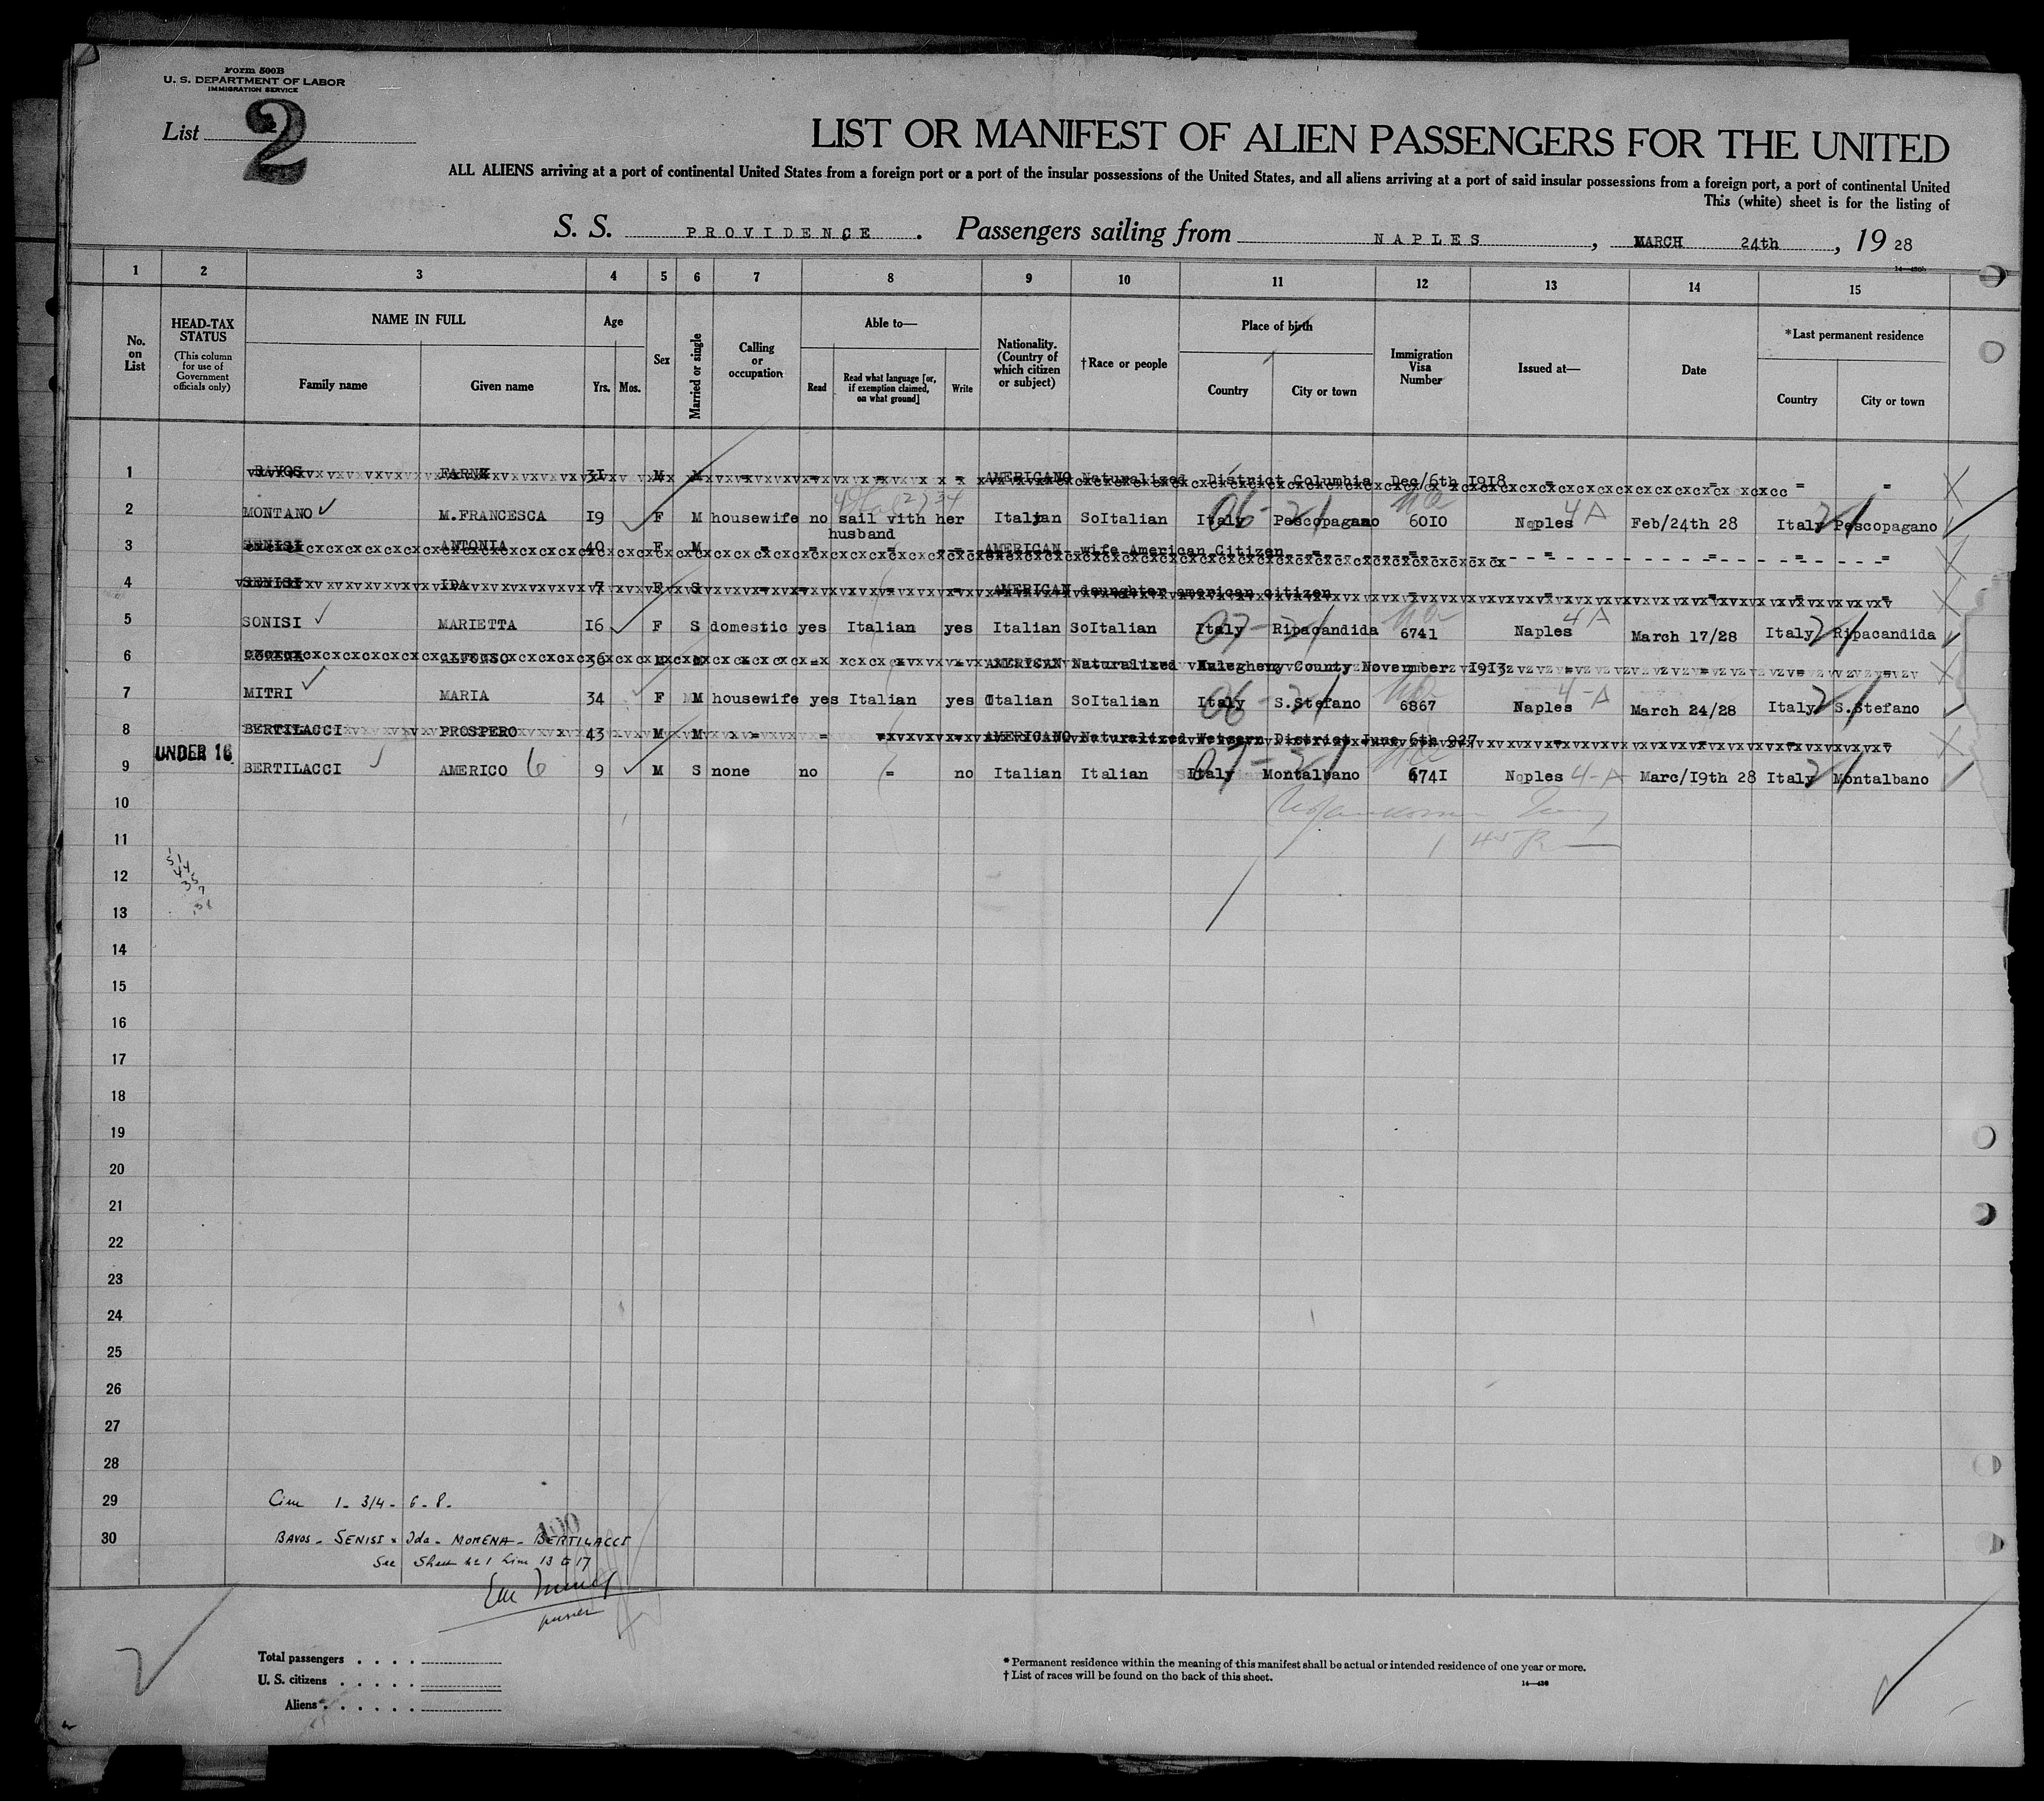 Form 500B
U. S. DEPARTMENT OF LABOR
IMMIGRATION SERVICE
List 2
LIST OR MANIFEST OF ALIEN PASSENGERS FOR THE UNITED
ALL ALIENS arriving at a port of continental United States from a foreign port or a port of the insular possessions of the United States, and all aliens arriving at a port of said insular possessions from a foreign port, a port of continental United
This (white) sheet is for the listing of
S. S. PROVIDENCE . Passengers sailing from NAPLES , MARCH 24th , 19 28
1 2 3 4 5 6 7 8 9 10 11 12 13 14 15
No. on List
HEAD-TAX STATUS
(This column for use of Government officials only)
NAME IN FULL
Family name Given name
Age
Yrs. Mos.
Sex
Married or single
Calling or occupation
Able to—
Read Read what language [or, if exemption claimed, on what ground] Write
Nationality. (Country of which citizen or subject)
†Race or people
Place of birth
Country City or town
Immigration Visa Number
Issued at—
Date
*Last permanent residence
Country City or town
1 BAVOS 31 M M AMERICANO Naturalized District Columbia Dec/6th 1918
2 MONTANO M.FRANCESCA 19 F M housewife no sail vith her husband Italian SoItalian Italy 06-21 Pescopagano 6010 Naples 4A Feb/24th 28 Italy 21 Pescopagano
3 SENISI ANTONIA 40 F M AMERICAN wife American Citizen
4 SENISI IDA 7 F S AMERICAN doughter american citizen
5 SONISI MARIETTA 16 F S domestic yes Italian yes Italian SoItalian Italy 07-21 Ripacandida 6741 Naples 4A March 17/28 Italy 21 Ripacandida
6 ALFONSO 36 M M AMERICAN Naturalized County November 1913
7 MITRI MARIA 34 F M housewife yes Italian yes Italian SoItalian Italy 06-21 S.Stefano 6867 Naples 4-A March 24/28 Italy 21 S.Stefano
8 BERTILACCI PROSPERO 43 M M AMERICANO Naturalized District June 6th 927
UNDER 16
9 BERTILACCI AMERICO 6 9 M S none no = no Italian Italian Italy 07-21 Montalbano 6741 Naples 4-A Marc/19th 28 Italy 21 Montalbano
10
11
12
13
14
15
16
17
18
19
20
21
22
23
24
25
26
27
28
29 1- 3/4- 6-8-
30 BAVOS - SENISI Ida - MORENA - BERTILACCI
See Sheet 1 Line 13 to 17
purser
Total passengers . . . .
U. S. citizens . . . . .
Aliens . . . . . .
* Permanent residence within the meaning of this manifest shall be actual or intended residence of one year or more.
† List of races will be found on the back of this sheet.
14—430